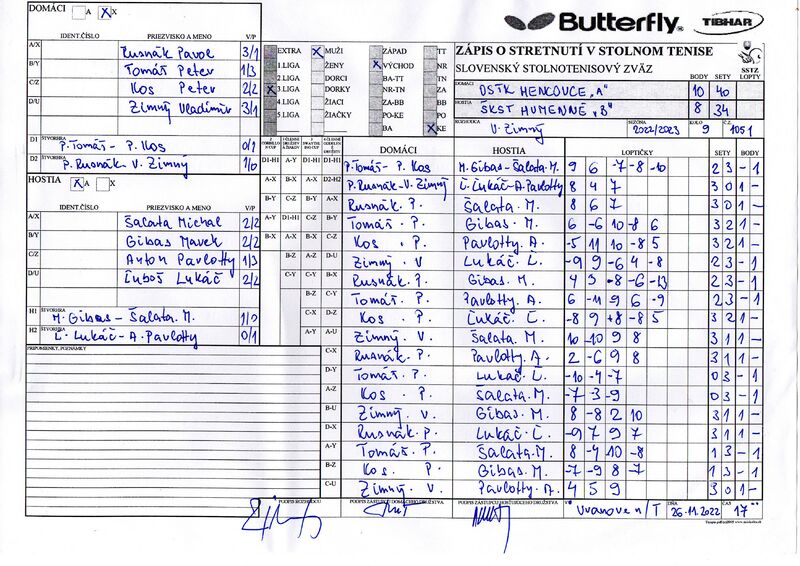 DOMÁCI A X
Butterfly
TIBHAR
IDENT.ČÍSLO PRIEZVISKO A MENO V/P
A/X Rusnák Pavol 3/1
B/Y Tomáš Peter 1/3
C/Z Kos Peter 2/2
D/U Zimný Vladimír 3/1
EXTRA MUŽI ZÁPAD TT
1.LIGA ŽENY VÝCHOD NR
2.LIGA DORCI BA-TT TN
3.LIGA DORKY NR-TN ZA
4.LIGA ŽIACI ZA-BB BB
5.LIGA ŽIAČKY PO-KE PO
BA KE
ZÁPIS O STRETNUTÍ V STOLNOM TENISE
SLOVENSKÝ STOLNOTENISOVÝ ZVÄZ
SSTZ
BODY LOPTY
DOMÁCI OSTK HENCOVCE „A" 10 40
HOSTIA ŠKST HUMENNÉ „B" 8 34
ROZHODCA V. Zimný SEZÓNA 2022/2023 KOLO 9 Č. 1051
D1 ŠTVORHRA P. Tomáš - P. Kos 0/1
D2 P. Rusnák - V. Zimný 1/0
HOSTIA A X
IDENT.ČÍSLO PRIEZVISKO A MENO V/P
A/X Šalata Michal 2/2
B/Y Gibas Marek 2/2
C/Z Anton Pavlotty 1/3
D/U Ľuboš Lukáč 2/2
H1 ŠTVORHRA M. Gibas - Šalata. M. 1/0
H2 Ľ. Lukáč - A. Pavlotty 0/1
PRIPOMIENKY, POZNÁMKY
DOMÁCI HOSTIA LOPTIČKY SETY BODY
D1-H1 P. Tomáš - P. Kos M. Gibas - Šalata. M. 9 6 -7 -8 -10 2 3 - 1
D2-H2 P. Rusnák - V. Zimný Ľ. Lukáč - A. Pavlotty 8 4 7 3 0 1 -
A-X Rusnák. P. Šalata. M. 8 6 7 3 0 1 -
B-Y Tomáš. P. Gibas. M. 6 -6 10 -8 6 3 2 1 -
C-Z Kos. P. Pavlotty. A. -5 11 10 -8 5 3 2 1 -
D-U Zimný. V Lukáč. Ľ. -9 9 -6 4 -8 2 3 - 1
Rusnák. P. Gibas. M. 4 9 -8 -6 -13 2 3 - 1
Tomáš. P. Pavlotty. A. 6 -11 9 6 -9 2 3 - 1
Kos. P. Lukáč. Ľ. -8 9 +8 -8 5 3 2 1 -
Zimný. V. Šalata. M. 10 -10 9 8 3 1 1 -
C-X Rusnák. P. Pavlotty. A. 2 -6 9 8 3 1 1 -
D-Y Tomáš. P. Lukáč. Ľ. -10 -4 -7 0 3 - 1
A-Z Kos. P. Šalata. M. -7 -3 -9 0 3 - 1
B-U Zimný. V. Gibas. M. 8 -8 2 10 3 1 1 -
D-X Rusnák. P. Lukáč. Ľ. -9 7 9 7 3 1 1 -
A-Y Tomáš. P. Šalata. M. 8 -4 -10 -8 1 3 - 1
B-Z Kos. P. Gibas. M. -7 -9 8 -7 1 3 - 1
C-U Zimný. V. Pavlotty. A. 4 5 9 3 0 1 -
PODPIS ROZHODCU PODPIS ZÁSTUPCU DOMÁCEHO DRUŽSTVA PODPIS ZÁSTUPCU HOSŤUJÚCEHO DRUŽSTVA V Vranove n/T DŇA 26.11.2022 ČAS 17